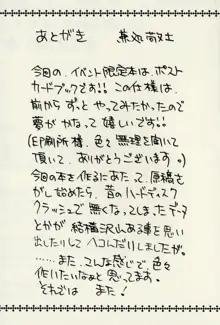 あとがき 兼処敬士
今回の、イベント限定本は、ポスト
カードブックです!! この仕様は、
前からずっとやってみたかったので
夢がかなって嬉しいです!!
(印刷所様、色々無理を聞いて
頂いて、ありがとうございます。)
今回の本を作るにあたって、原稿を
がし始めたら、昔のハードディスク
クラッシュで無くなってしまったデータ
とかが結構沢山ある事を思い
出したりしてヘコんだりしましたが。
……また、こんな感じで、色々
作りたいなぁと思ってます。
それでは また!